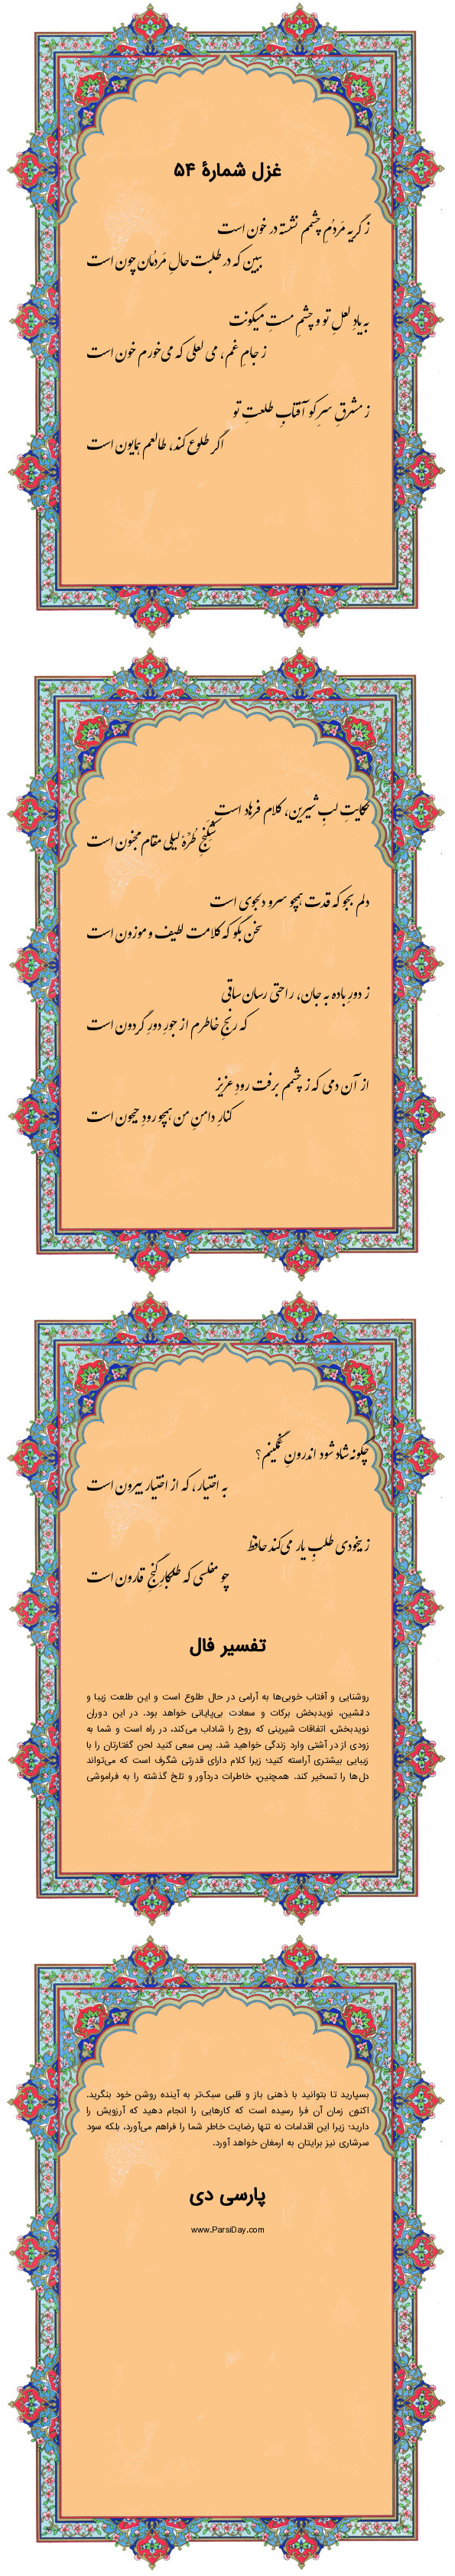 غزل شمارهٔ ۵۴
ز گریه مَردُمِ چشمم نشسته در خون است
ببین که در طلبت حالِ مَردُمان چون است
به یادِ لعلِ تو و چشمِ مستِ میگونت
ز جامِ غم، می لعلی که می‌خورم خون است
ز مشرقِ سرِ کو آفتابِ طلعتِ تو
اگر طلوع کند، طالعم همایون است
حکایتِ لبِ شیرین، کلام فرهاد است
شِکَنجِ طُرِّهٔ لیلی مقام مجنون است
دلم بجو که قدت همچو سرو دلجوی است
سخن بگو که کلامت لطیف و موزون است
ز دورِ باده به جان، راحتی رسان ساقی
که رنجِ خاطرم از جورِ دورِ گردون است
از آن دمی که ز چشمم برفت رودِ عزیز
کنارِ دامنِ من همچو رودِ جیحون است
چگونه شاد شود اندرونِ غمگینم؟
به اختیار، که از اختیار بیرون است
ز بیخودی طلبِ یار می‌کند حافظ
چو مفلسی که طلبکارِ گنجِ قارون است
تفسیر فال
روشنایی و آفتاب خوبی‌ها به آرامی در حال طلوع است و این طلعت زیبا و
دلنشین، نویدبخش برکات و سعادت بی‌پایانی خواهد بود. در این دوران
نویدبخش، اتفاقات شیرینی که روح را شاداب می‌کند، در راه است و شما به
زودی از در آشتی وارد زندگی خواهید شد. پس سعی کنید لحن گفتارتان را با
زیبایی بیشتری آراسته کنید؛ زیرا کلام دارای قدرتی شگرف است که می‌تواند
دل‌ها را تسخیر کند. همچنین، خاطرات دردآور و تلخ گذشته را به فراموشی
بسپارید تا بتوانید با ذهنی باز و قلبی سبک‌تر به آینده روشن خود بنگرید.
اکنون زمان آن فرا رسیده است که کارهایی را انجام دهید که آرزویش را
دارید؛ زیرا این اقدامات نه تنها رضایت خاطر شما را فراهم می‌آورد، بلکه سود
سرشاری نیز برایتان به ارمغان خواهد آورد.
پارسی دی
www.ParsiDay.com